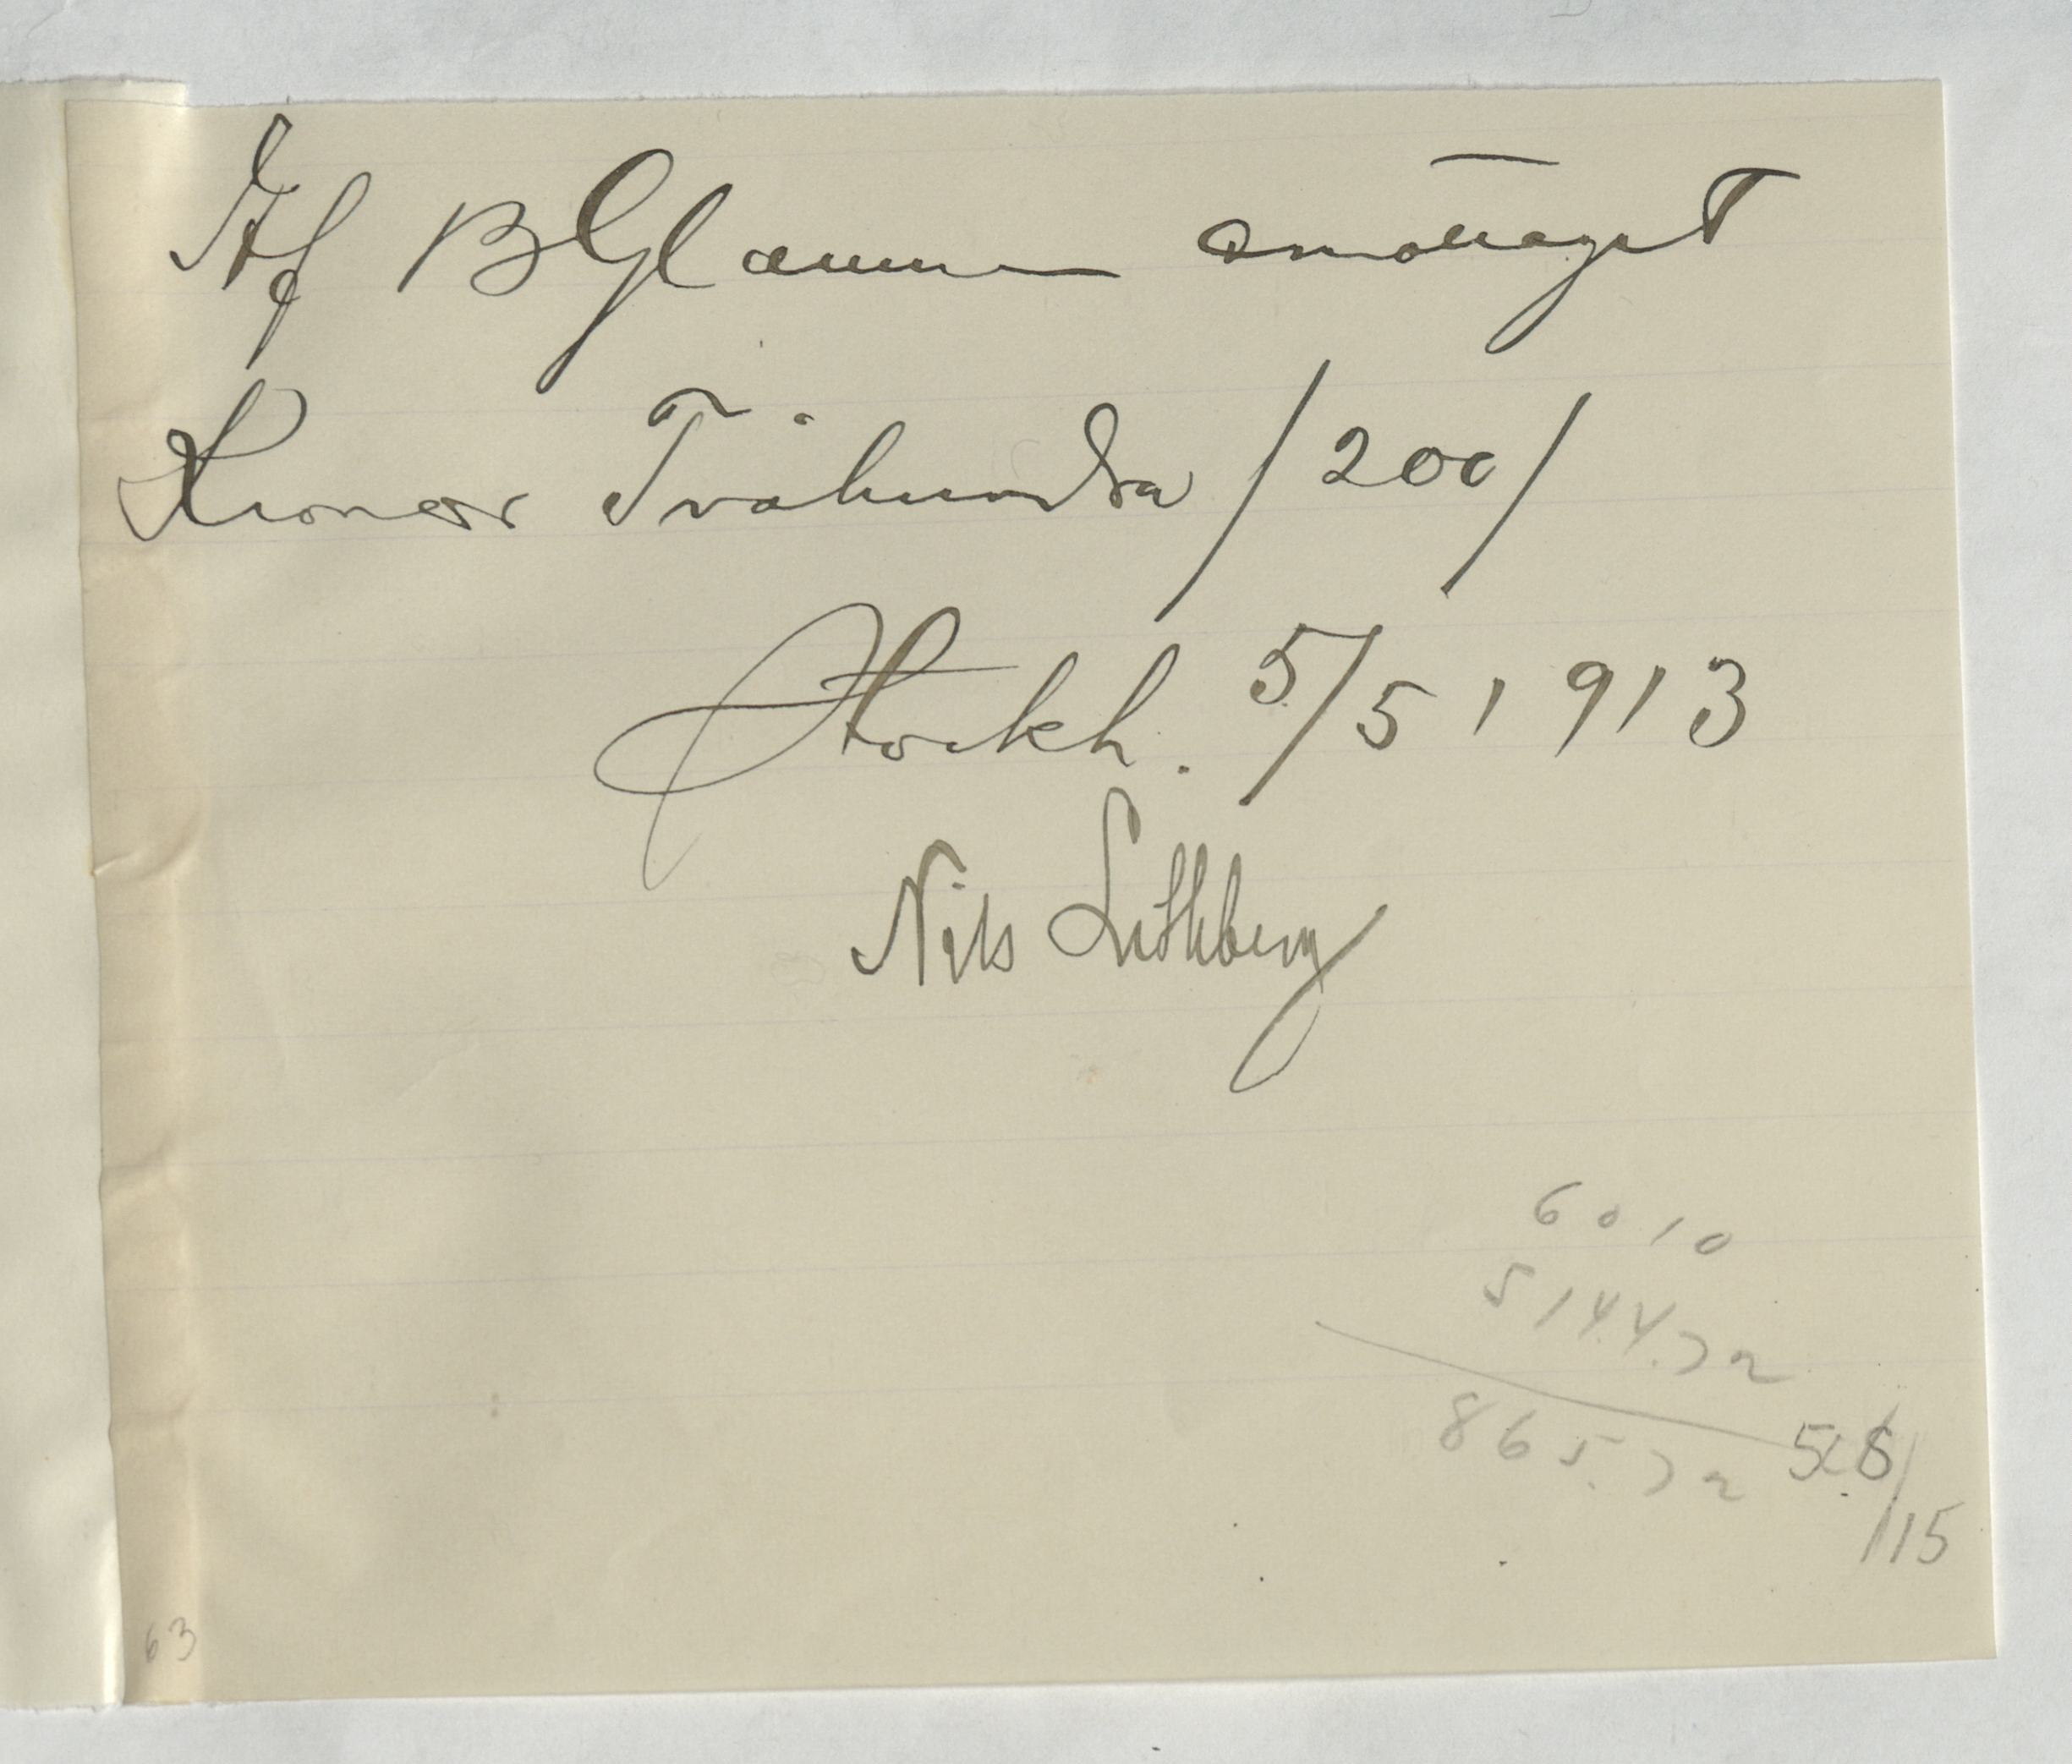 Af B Glanman emottaget
Kronor Tvåhundra /200/
Stockh. 5/5 1913
Nils Lithberg
6010
5144.72
865.72
5
/15
63